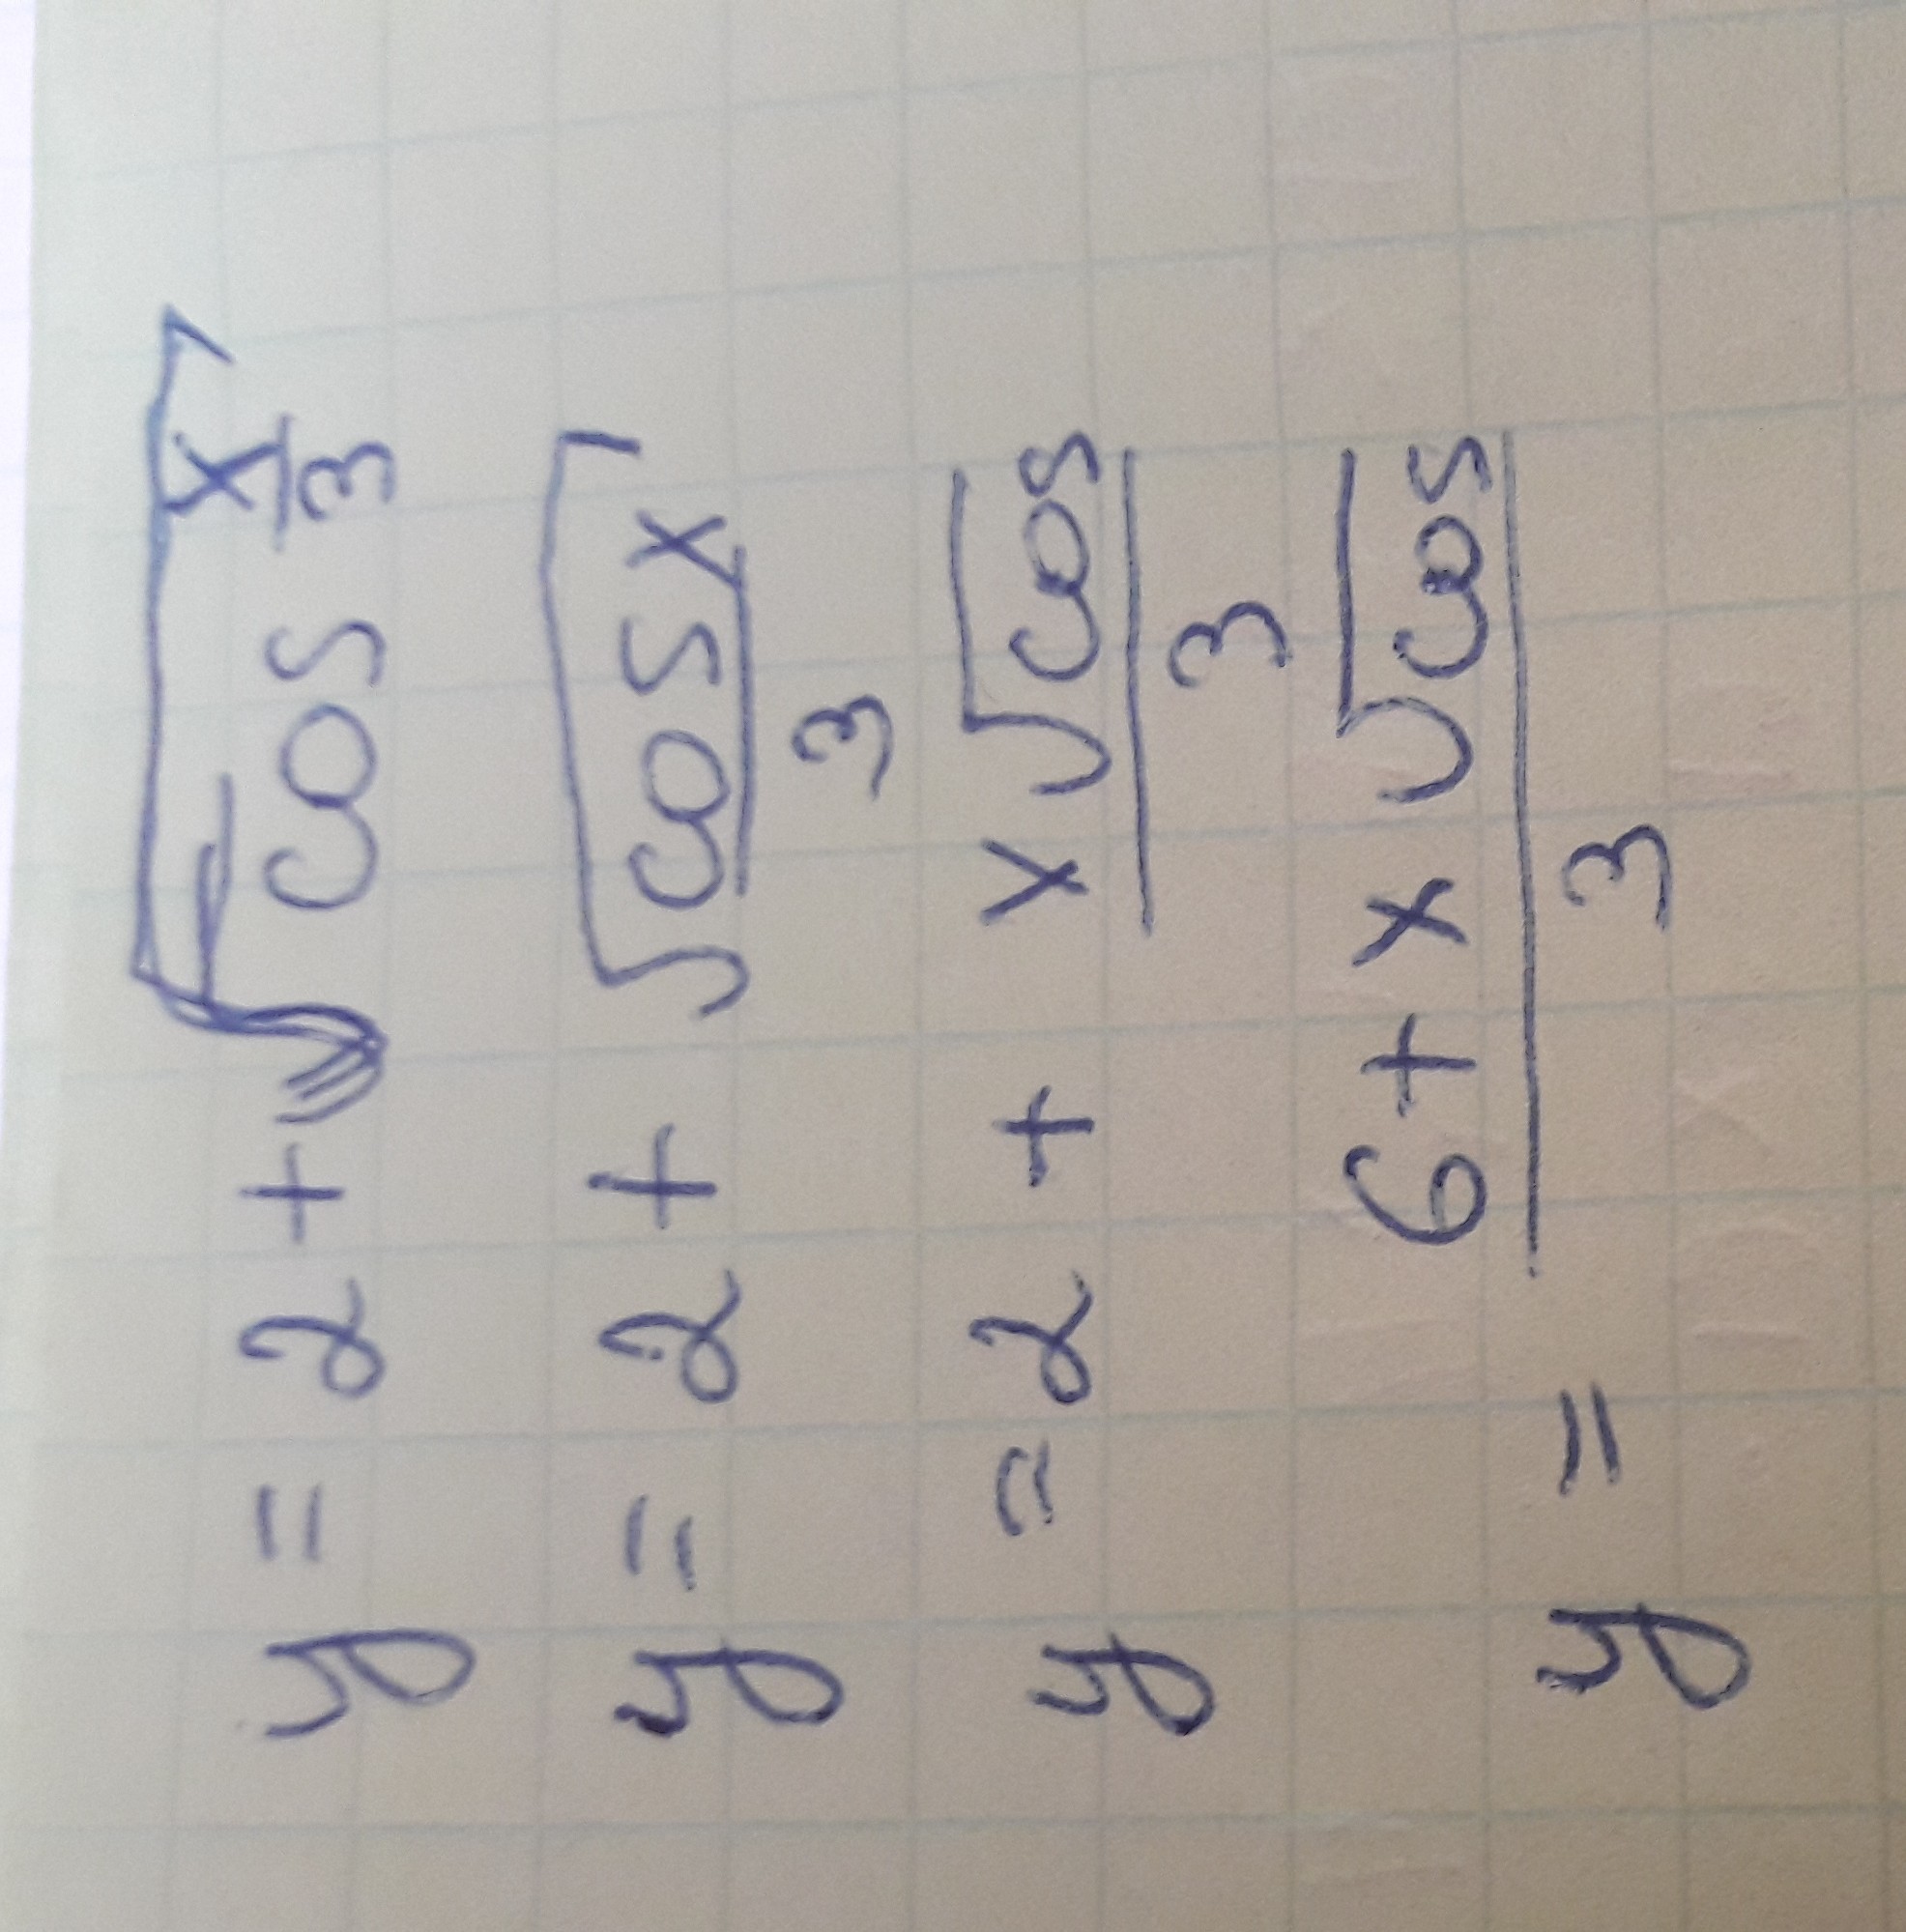 y = 2 + √(cos x/3)
y = 2 + √(cos x)/3
y = 2 + x√cos/3
y = 6 + x√cos/3